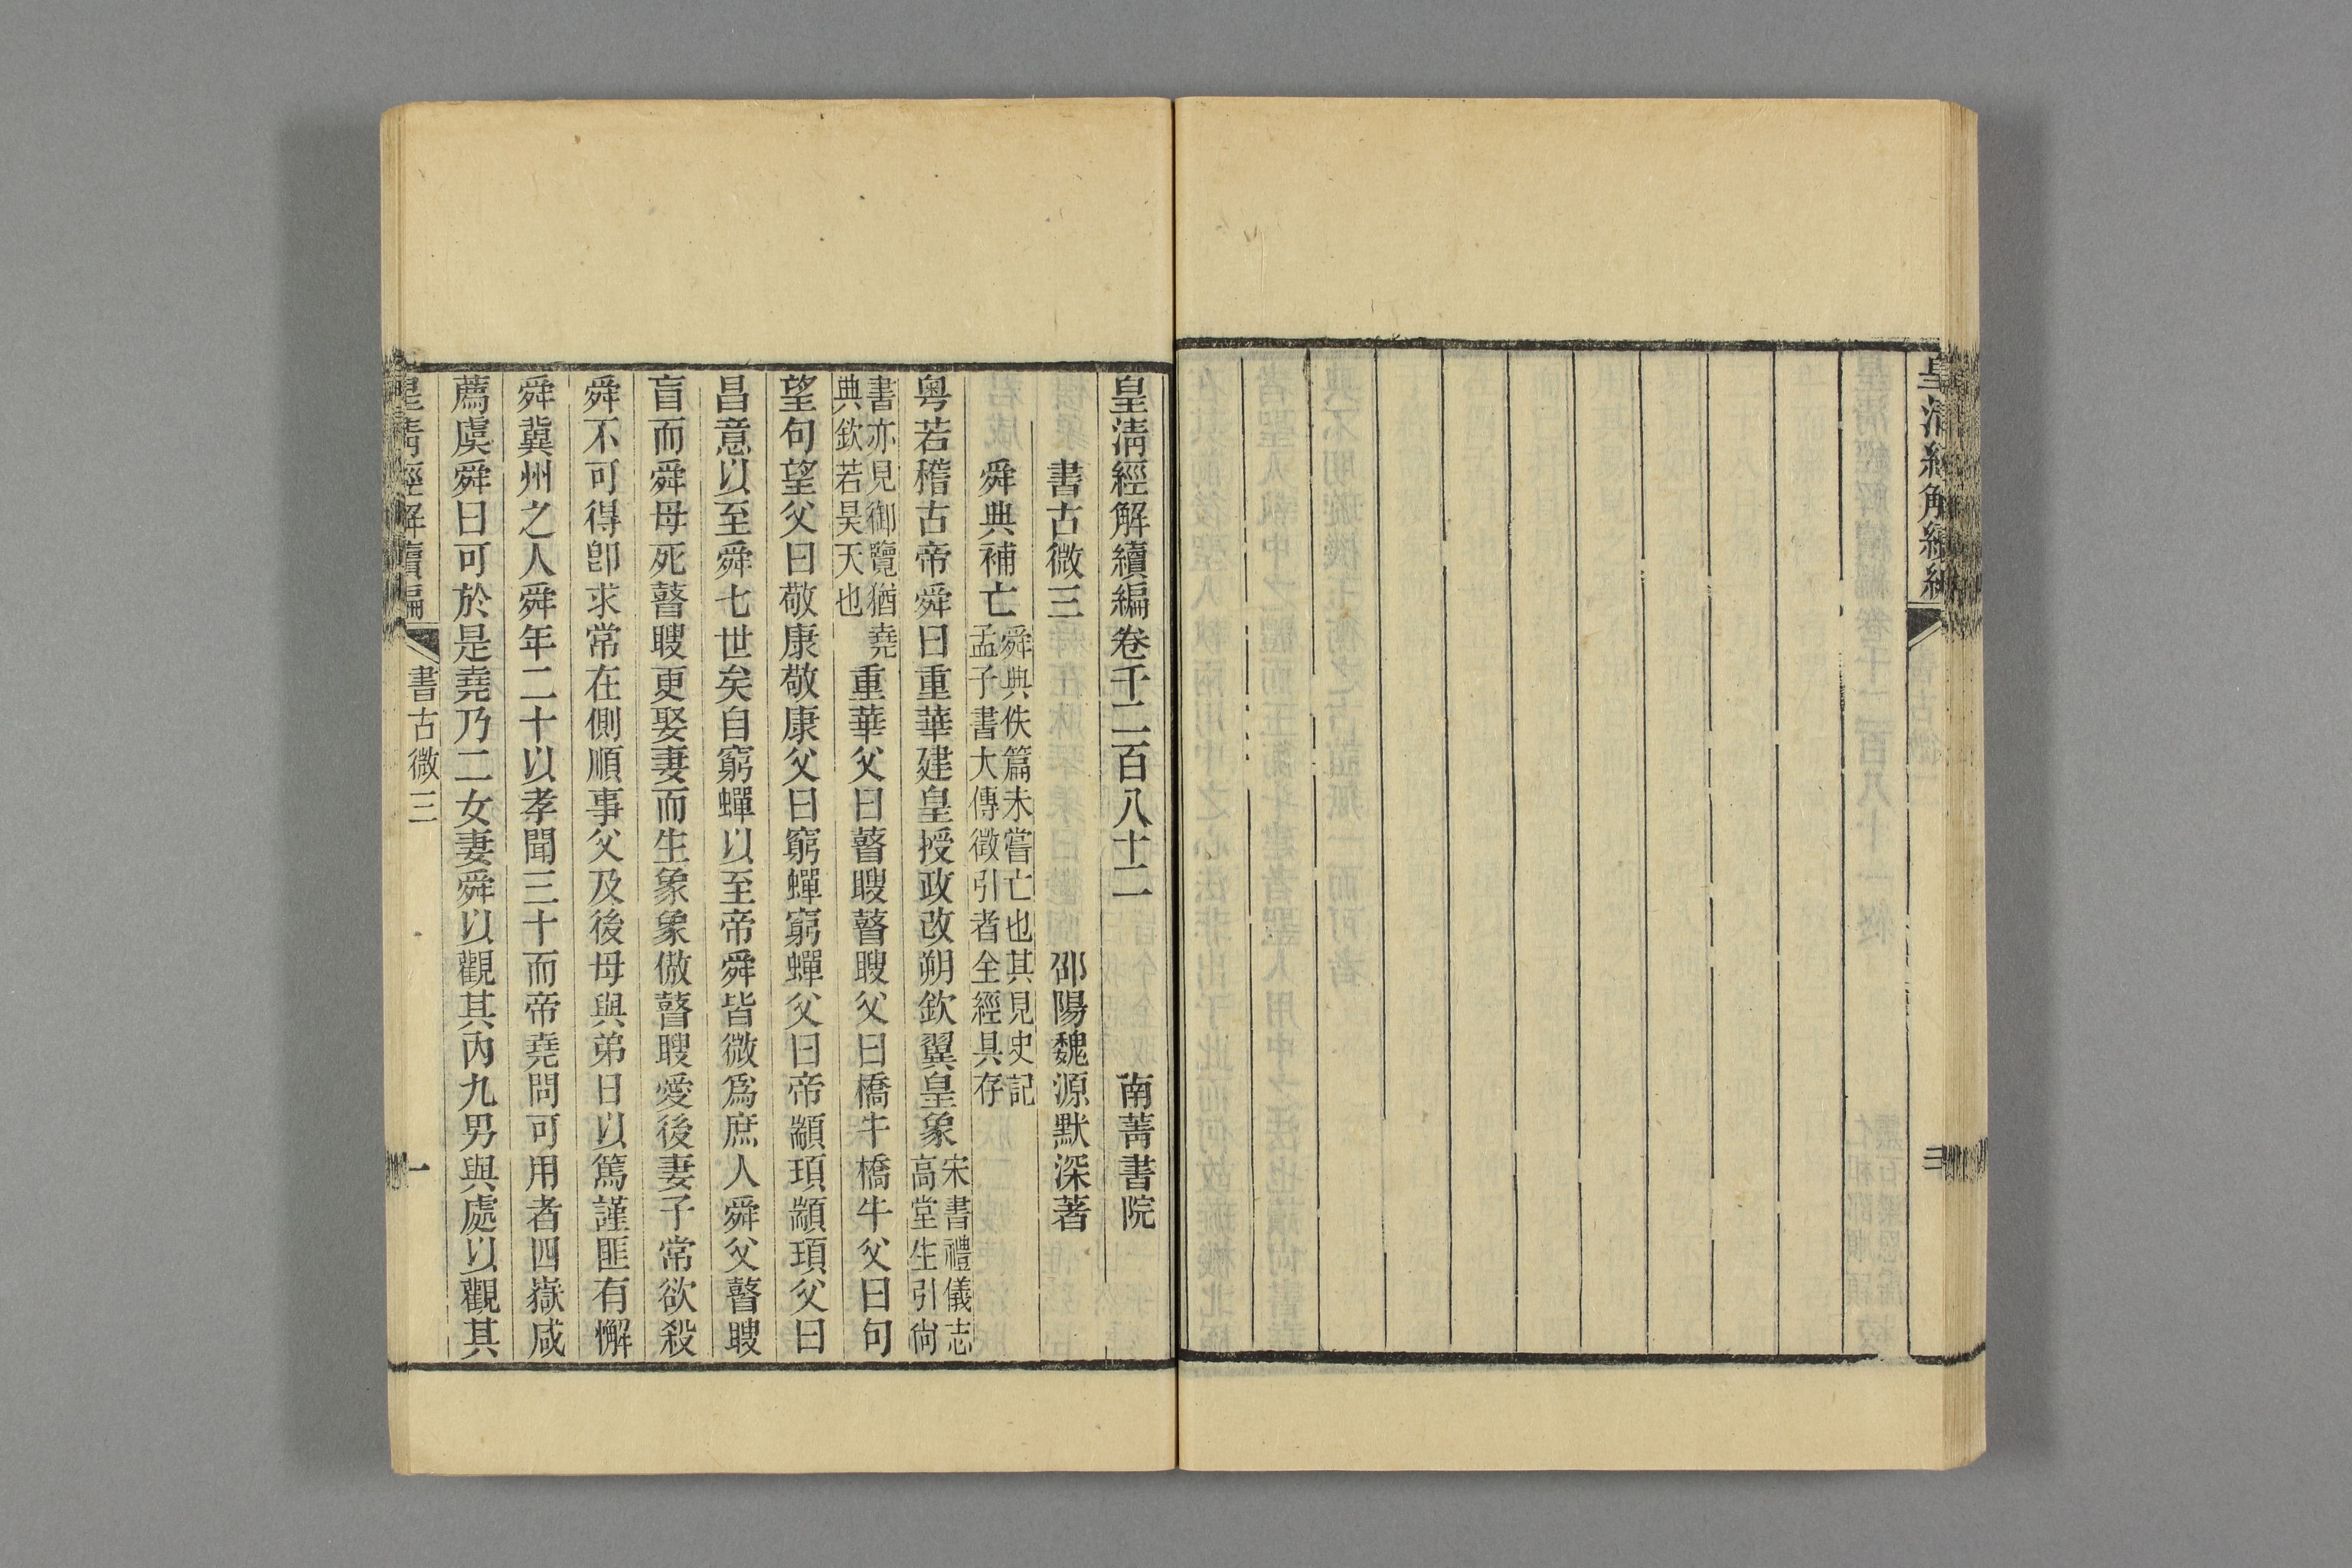 皇清經解續編
三
皇清經解續編卷千二百八十二 南菁書院
書古微三 邵陽魏源默深著
舜典補亡 舜典佚篇未嘗亡也其見史記
孟子書大傳徵引者全經具存
粵若稽古帝舜曰重華建皇授政改朔欽翼皇象 宋書禮儀志
高堂生引尙
書亦見御覽猶堯
典欽若昊天也
重華父曰瞽瞍瞽瞍父曰橋牛橋牛父曰句
望句望父曰敬康敬康父曰窮蟬窮蟬父曰帝顓頊顓頊父曰
昌意以至舜七世矣自窮蟬以至帝舜皆微爲庶人舜父瞽瞍
盲而舜母死瞽瞍更娶妻而生象象傲瞽瞍愛後妻子常欲殺
舜不可得卽求常在側順事父及後母與弟日以篤謹匪有懈
舜冀州之人舜年二十以孝聞三十而帝堯問可用者四嶽咸
薦虞舜曰可於是堯乃二女妻舜以觀其內九男與處以觀其
皇清經解續編 書古微三 一